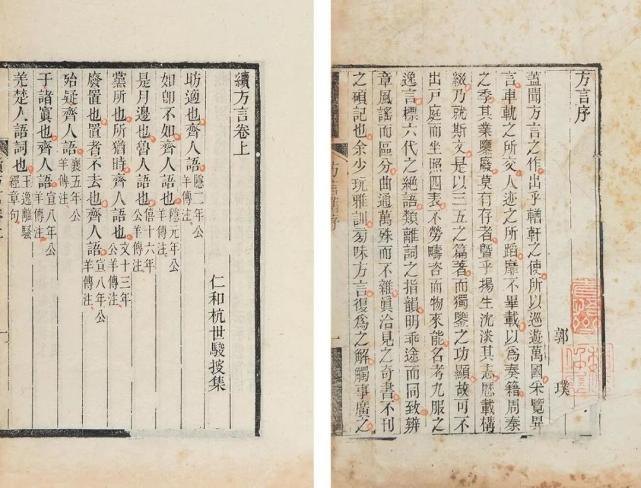 方言序
郭璞
蓋聞方言之作出乎輶軒之使所以巡遊萬國采覽異
言車軌之所交人迹之所蹈靡不畢載以爲奏籍周秦
之季其業隳廢莫有存者曁乎揚生沈淡其志歷載構
綴乃就斯文是以三五之篇著而獨鑒之功顯故可不
出戶庭而坐照四表不勞疇咨而物來能名考九服之
逸言標六代之絶語類離詞之指韻明乖途而同致辨
章風謠而區分曲通萬殊而不雜眞洽見之奇書不刊
之碩記也余少玩雅訓旁味方言復爲之解觸事廣之
續方言卷上
仁和杭世駿披集
昉適也齊人語隱二年公羊傳注
如卽不如齊人語隱元年公羊傳注
是月邊也魯人語也僖十六年公羊傳注
黨所也所猶時齊人語也文十三年公羊傳注
廢置也置者不去也齊人語宣八年公羊傳注
殆疑齊人語襄五年公羊傳注
于諸寘也齊人語也宣八年公羊傳注
羌楚人語詞也王逸離騷經章句